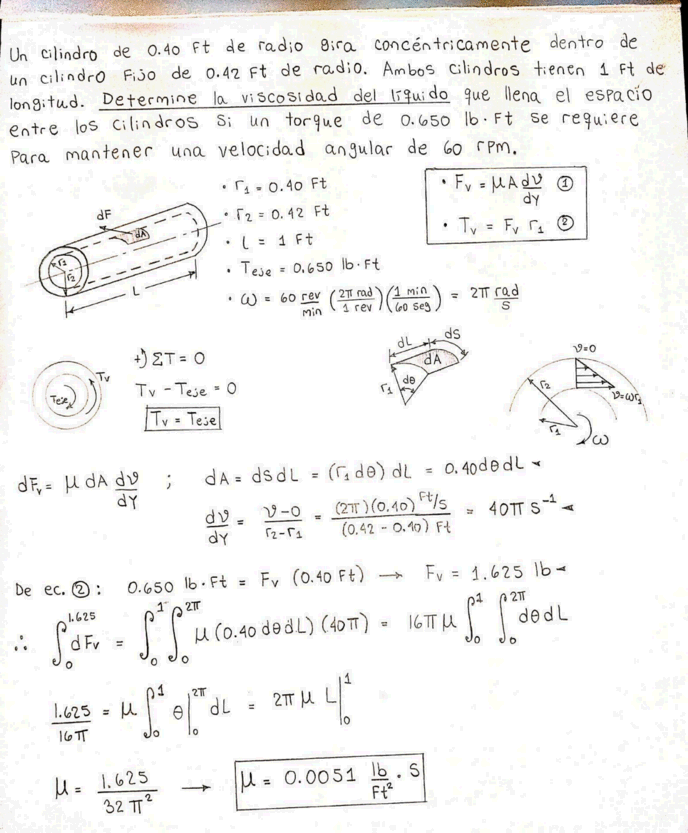 Un cilindro de 0.40 Ft de radio gira concéntricamente dentro de
un cilindro Fijo de 0.42 Ft de radio. Ambos cilindros tienen 1 Ft de
longitud. Determine la viscosidad del líquido que llena el espacio
entre los cilindros si un torque de 0.650 lb·Ft se requiere
Para mantener una velocidad angular de 60 rpm.
dF
dA
r1
r2
L
• r1 = 0.40 Ft
• r2 = 0.42 Ft
• l = 1 Ft
• Teje = 0.650 lb·Ft
• ω = 60 rev/min (2π rad/1 rev)(1 min/60 seg) = 2π rad/s
• Fv = μA dϑ/dy ①
• Tv = Fv r1 ②
Teje
Tv
+) ΣT = 0
Tv - Teje = 0
Tv = Teje
dL
dS
dA
r1
dθ
ϑ=0
r2
ϑ=ωr1
r1
ω
dFv = μ dA dϑ/dy ; dA = dS dL = (r1 dθ) dL = 0.40dθdL
dϑ/dy = ϑ-0/r2-r1 = (2π)(0.40) Ft/s/(0.42 - 0.40) Ft = 40π s⁻¹
De ec. ②: 0.650 lb·Ft = Fv (0.40 Ft) → Fv = 1.625 lb
∴ ∫₀^1.625 dFv = ∫₀^1 ∫₀^2π μ (0.40 dθdL) (40π) = 16π μ ∫₀^1 ∫₀^2π dθdL
1.625/16π = μ ∫₀^1 θ|₀^2π dL = 2π μ L|₀^1
μ = 1.625/32 π² → μ = 0.0051 lb/Ft² · s